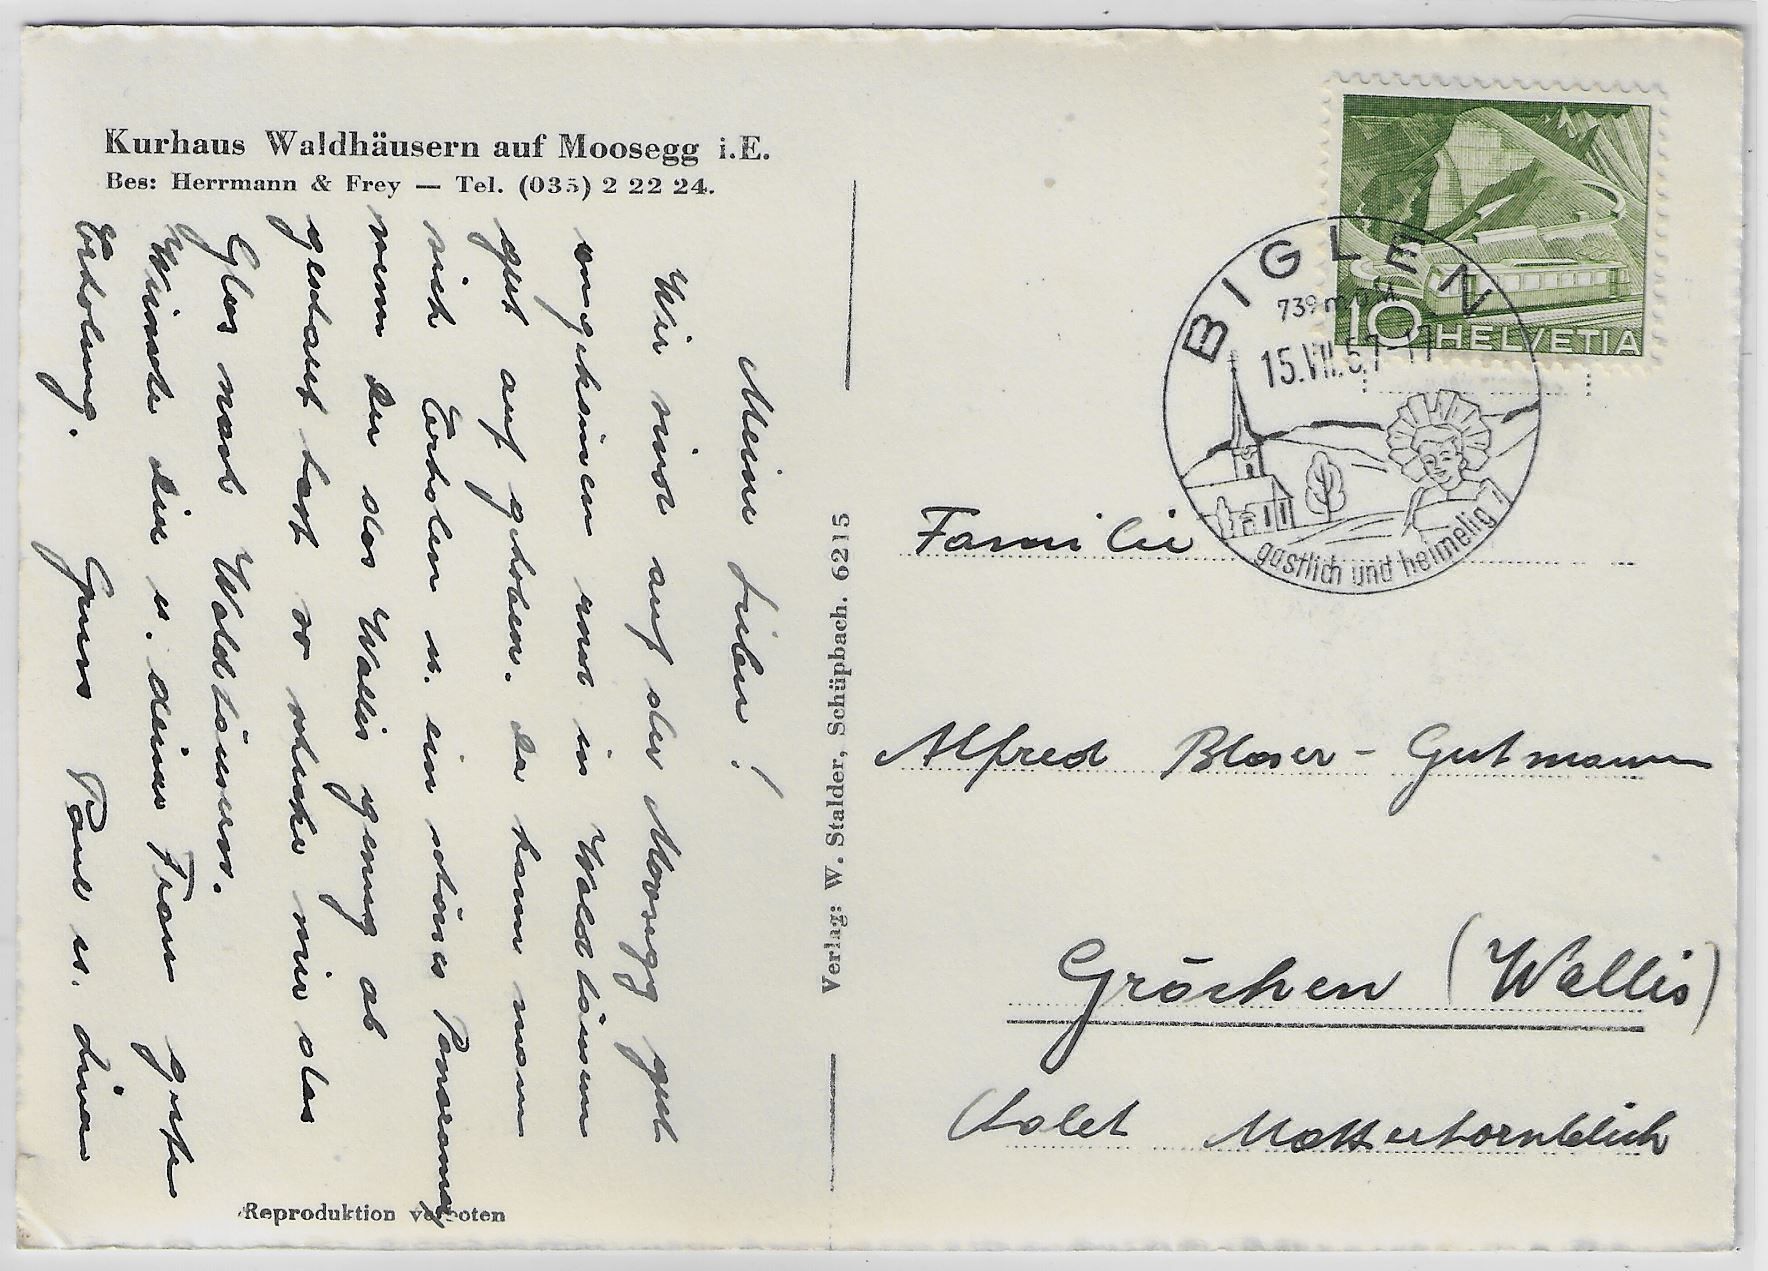 Kurhaus Waldhäusern auf Moosegg i.E.
Bes: Herrmann & Frey — Tel. (035) 2 22 24.
Meine Lieben!
Wir sind auf der Moosegg gut
angekommen und in Waldhäusern
gut auf gehoben. Da kann man
sich Erholen u. ein schönes Panorama
wenn du das Wallis genug ab
geschaut hast so schicke mir das
Glas nach Waldhäusern.
Wünsche dir u. deiner Frau gute
Erholung. Gruss Paul u.
Reproduktion verboten
Verlag: W. Stalder, Schüpbach. 6215
HELVETIA
10
BIGLEN
739 m.ü.M
15.VII.57-17
gastlich und heimelig
Familie
Alfred Blaser-Gutmann
Grächen (Wallis)
Chalet Matterhornblick